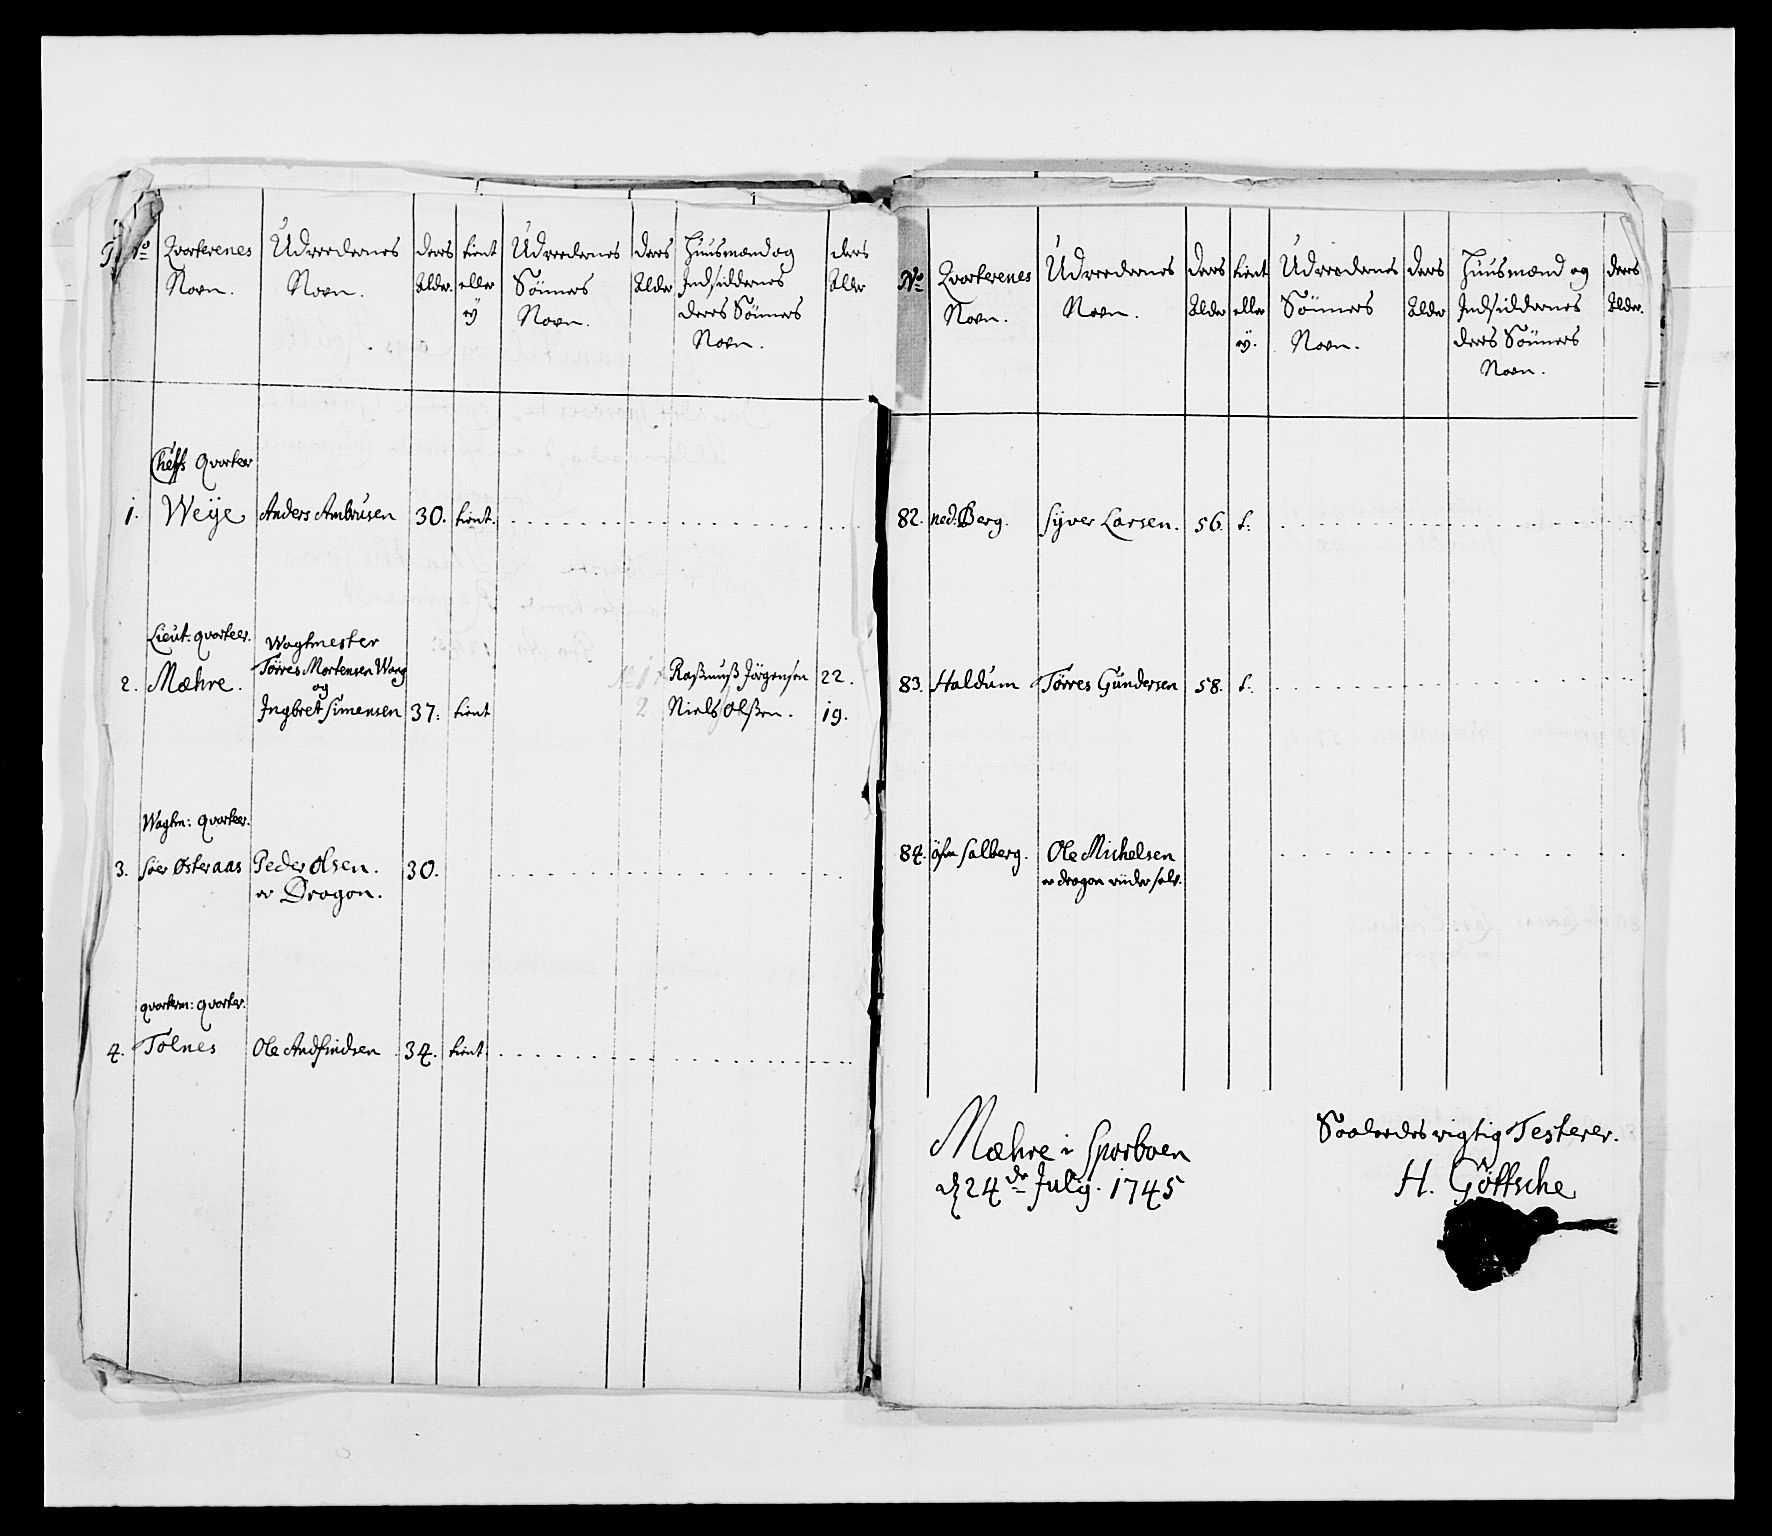 No
Qvarterenes
Navn.
Udreedernes
Navn.
deres
Alder.
tient
eller
ey
Udreedernes
Sönners
Navn.
deres
Alder
Huusmænd og
Indsiddernes
deres Sönners
Navn.
deres
Alder
Cheffs Qvarteer
1. Weÿe Anders Ambrusen 30. tient.
Lieut: qvarteer.
Wagtmester
2. Mæhre. Törres Mortensen Wang
og
Ingbret Simensen 37. tient
1 Rasmuß Jörgensen 22.
2 Niels Olßen. 19.
Wagtm: Qvarteer.
3. Söer Østeraas Peder Olsen. 30.
er Dragon.
qvarterm: qvarter.
4. Tolnes Ole Andfindsen 34. tient
No
Qvarterenes
Navn.
Udreedernes
Navn.
deres
Alder
tient
eller
ey.
Udreedernes
Sönners
Navn.
deres
Alder
Huusmænd og
Indsiddernes
deres Sönners
Navn.
deres
Alder.
82. ned: Berg. Syver Larsen. 56. t.
83. Haldum Törres Gundersen 58. t.
84. öfre Salberg. Ole Michelsen
er dragon under selv.
Mæhre i Sparboen
d. 24de July. 1745
Saaledes rigtig Testerer.
H. Göttsche